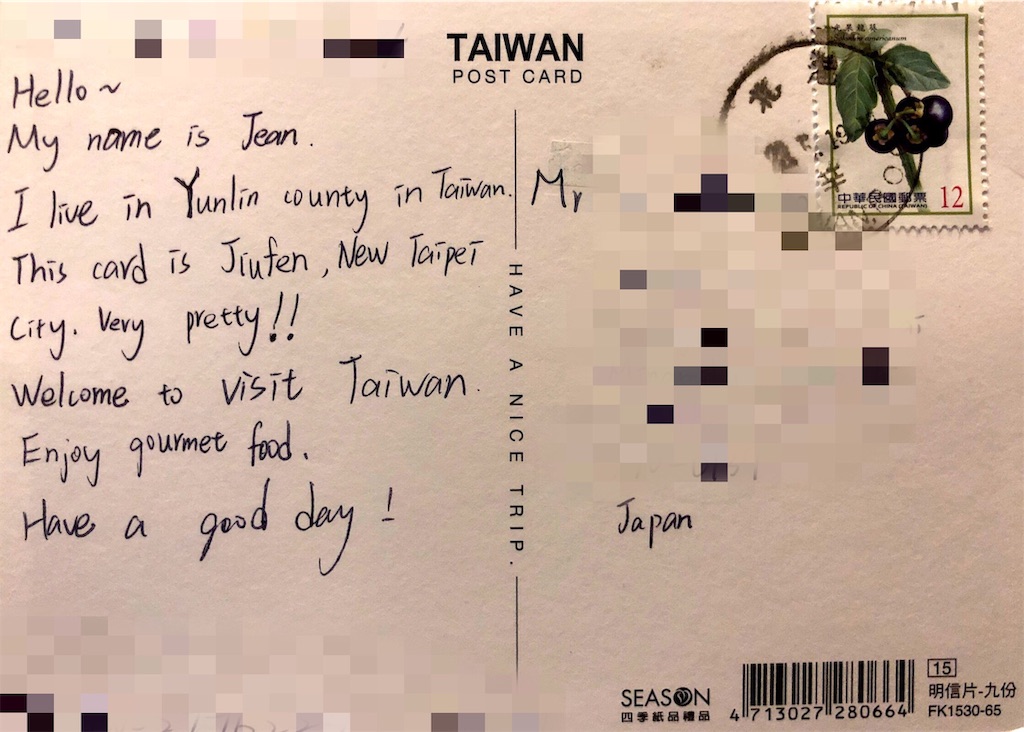 TAIWAN
POST CARD
Hello~
My name is Jean.
I live in Yunlin county in Taiwan.
This card is Jiufen, New Taipei
City. Very pretty!!
Welcome to visit Taiwan.
Enjoy gourmet food.
Have a good day!
HAVE A NICE TRIP.
americanum
中華民國郵票
REPUBLIC OF CHINA (TAIWAN)
12
北
Mr
Japan
SEASON
四季紙品禮品
4 713027 280664
15
明信片-九份
FK1530-65